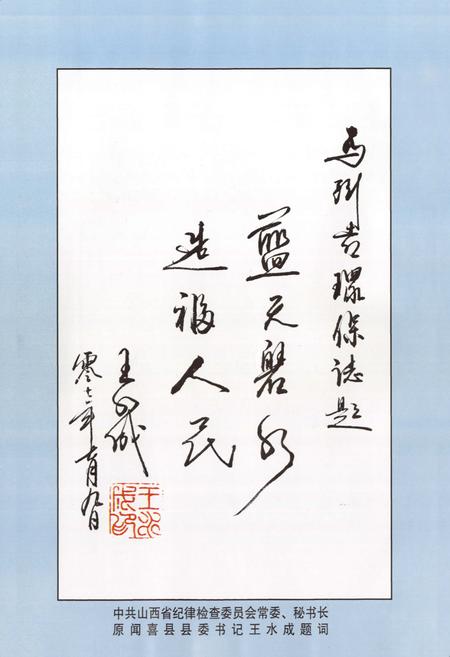 为闻喜環保誌題
藍天碧水
造福人民
王水成
零七年
王水成印
中共山西省纪律检查委员会常委、秘书长
原闻喜县县委书记王水成题词